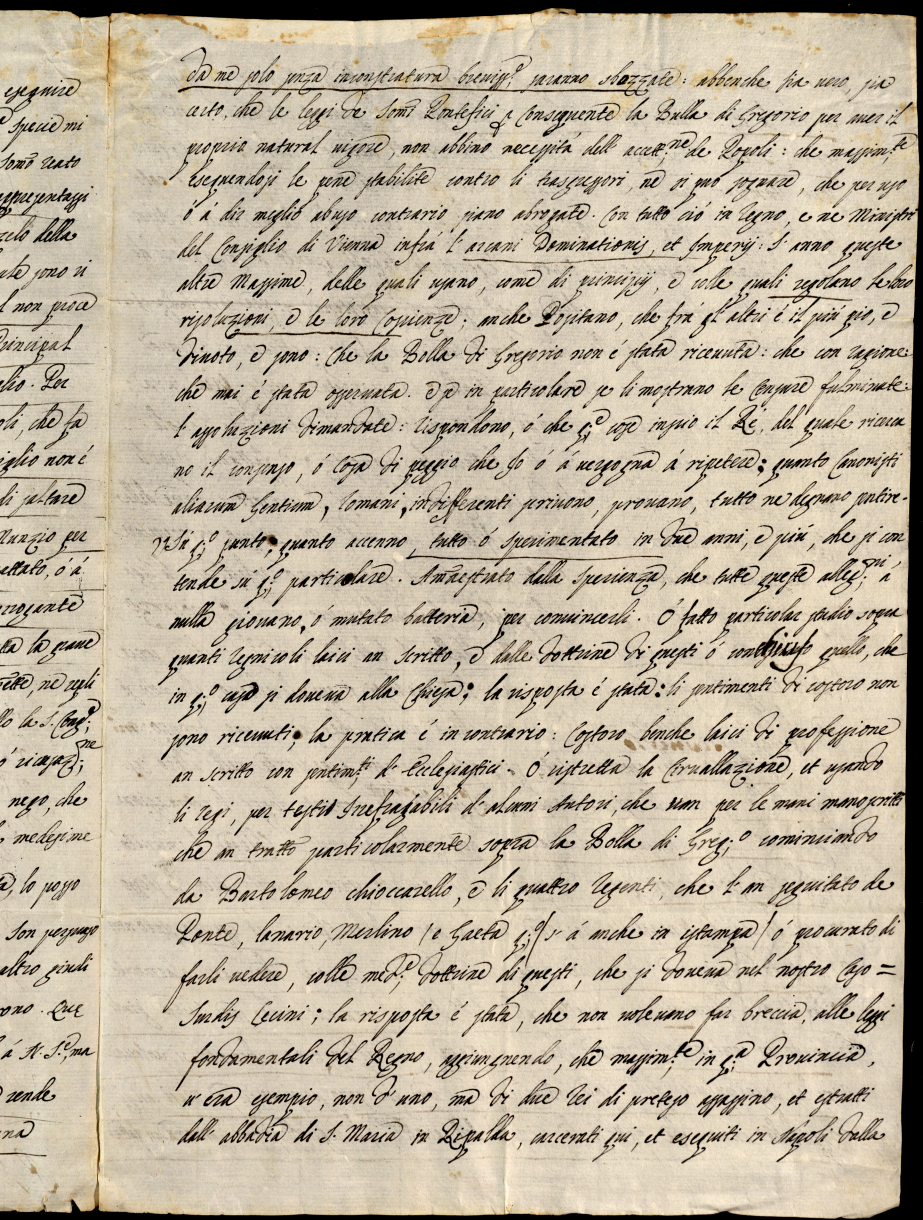 eseguire
specie mi
Som.o reato
appresentassi
zelo della
jono vi
l non proce
Principal
glio. Per
oli, che fa
iglio non è
di saltare
Nunzio per
attato, ò à
rrogante
la grave
ne negli
llo la S. Cong.
nego, che
medesime
lo posso
son persuaso
altro giudi
ono. Que
à N. S.re, ma
rende
da me solo senza inconstratura breviss.e saranno sbozzate: abbenche sia vero, sia
certo, che le leggi de Som.i Pontefici, e conseguente la Bulla di Gregorio per aver il
proprio natural vigore, non abbino necessità dell' accett.ne de Popoli: che massim.te
eseguendosi le pene stabilite contro li trasgressori, ne si può sognare, che per uso
ò à dir meglio abuso contrario siano abrogate. Con tutto cio in Regno, e ne Ministri
del Consiglio di Vienna infrà l' arcani Dominationis, et Imperij: s' anno queste
altre Massime, delle quali usano, come di principij, e colle quali regolano le loro
risoluzioni, e le loro Coscienze; anche Positano, che frà gl' altri è il più pio, e
divoto, e sono: Che la Bolla di Gregorio non è stata ricevuta: che con ragione
che mai è stata osservata. e se in particolare se li mostrano le Censure fulminate:
l' assoluzioni dimandate: rispondono, ò che q.te cose inscio il Rè, del quale ricerca
no il consenso, ò cosa di peggio che Io ò à vergogna à ripetere: quanto Canonisti
aliarum Gentium, Romani, indifferenti scrivono, provano, tutto ne degnano sentire.
Sù q.to punto, quanto accenno, tutto ò sperimentato in due anni, e più, che si con
tende sù q.to particolare. Ammaestrato dalla sperienza, che tutte queste alleg.ni, à
nulla giovano, ò mutato batteria, per convincerli. Ò fatto particolar studio sopra
quanti Regnicoli laici an scritto, e dalle dottrine di questi ò conchiuso quello, che
in q.to caso si doveva alla Chiesa; la risposta è stata: li sentimenti di costoro non
sono ricevuti; la pratica è in contrario: Costoro benche laici di professione
an scritto con sentim.ti d' Ecclesiastici. Ò ristretta la Circuallazione, et usando
li Regi, per testij Irrefragabili d' alcuni Autori, che van per le mani manoscritti
che an tratto particolarmente sopra la Bolla di Greg.o cominciando
da Bartolomeo chioccarello, e li quattro Regenti, che l' an seguitato de
Ponte, Lanario, Merlino (e Gaeta q.to s' à anche in istampa) ò procurato di
farli vedere, colle med.e dottrine di questi, che si doveva nel nostro Caso =
Surdis Cecini; la risposta è stata, che non volevano far breccia, alle leggi
fondamentali del Regno, aggiungnendo, che massim.te in q.ta Provincia,
v' era esempio, non d' uno, ma di due Rei di preteso assassino, et estratti
dall' abbadia di S. Maria in Ripalda, carcerati qui, et eseguiti in Napoli dalla